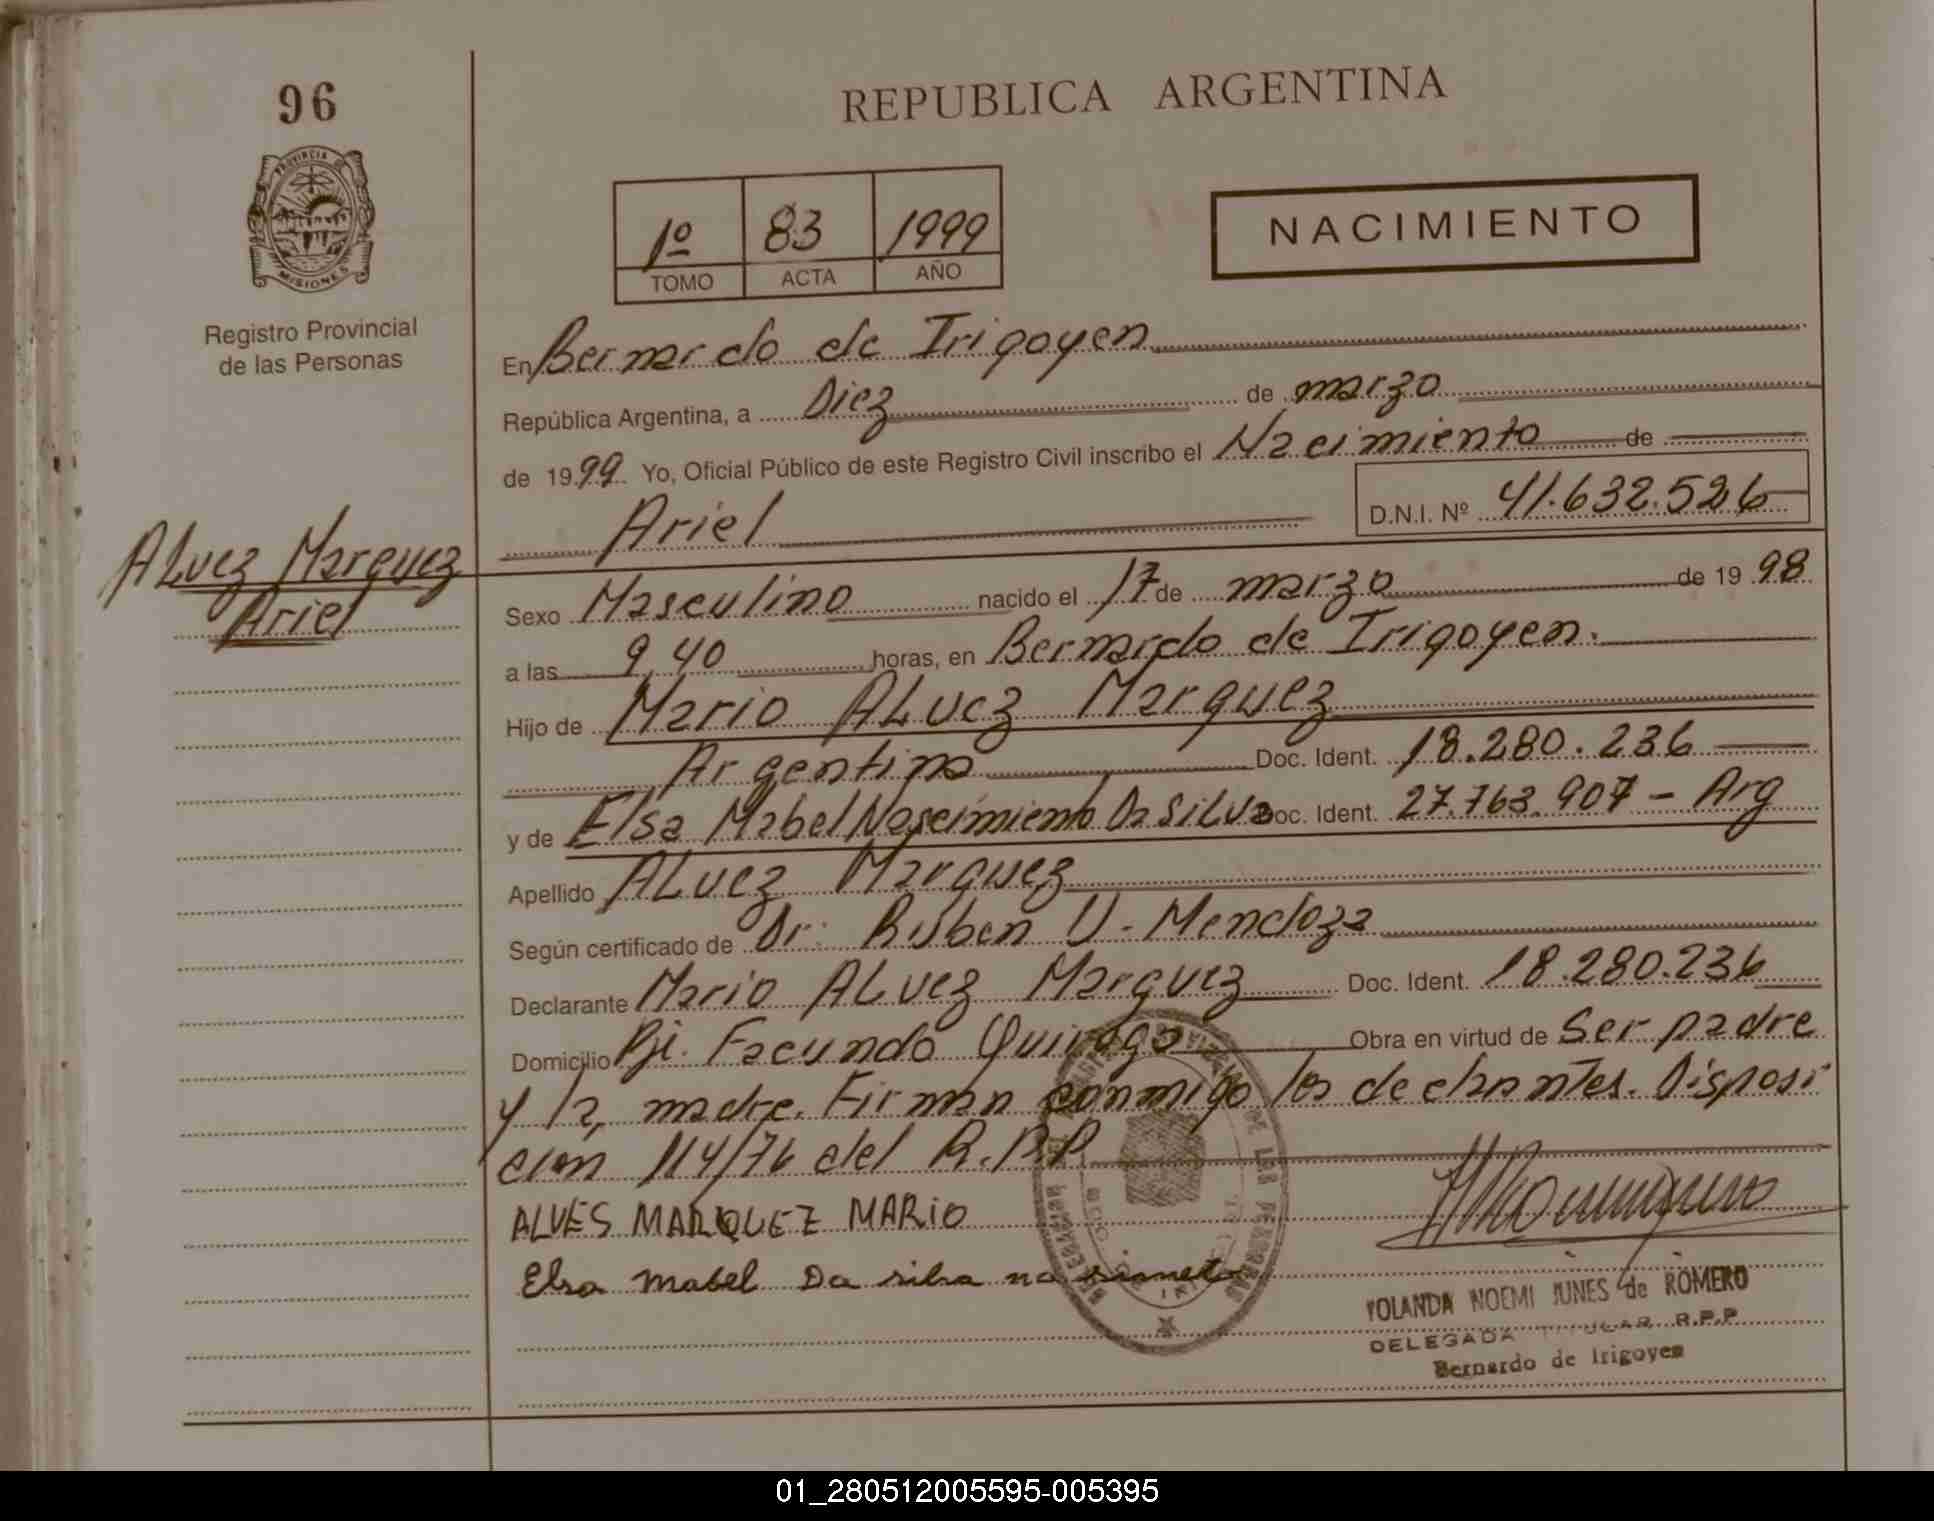 96
REPUBLICA ARGENTINA
PROVINCIA DE
MISIONES
Registro Provincial
de las Personas
1º 83 1999
TOMO ACTA AÑO
NACIMIENTO
En Bernardo de Irigoyen
República Argentina, a Diez de marzo
de 1999 Yo, Oficial Público de este Registro Civil inscribo el Nacimiento de
Ariel D.N.I. Nº 41.632.526
ALvez Marquez
Ariel
Sexo Masculino nacido el 17 de marzo de 1998
a las 9,40 horas, en Bernardo de Irigoyen.
Hijo de Mario ALvez Marquez
Argentina Doc. Ident. 18.280.236
y de Elsa Mabel Nascimiento Da SiLva Doc. Ident. 27.763.907 - Arg
Apellido ALvez Marquez
Según certificado de Dr. Ruben V. Mendoza
Declarante Mario ALvez Marquez Doc. Ident. 18.280.236
Domicilio Pje. Facundo Quiroga Obra en virtud de Ser padre
y la madre. Firman conmigo los declarantes. Disposi
cion 114/76 del R.P.P
ALVES MARQUEZ MARIO
Elsa Mabel Da silva
DE LAS PERSONAS
YOLANDA NOEMI JUNES de ROMERO
DELEGADA TITULAR R.P.P
Bernardo de Irigoyen
01_280512005595-005395